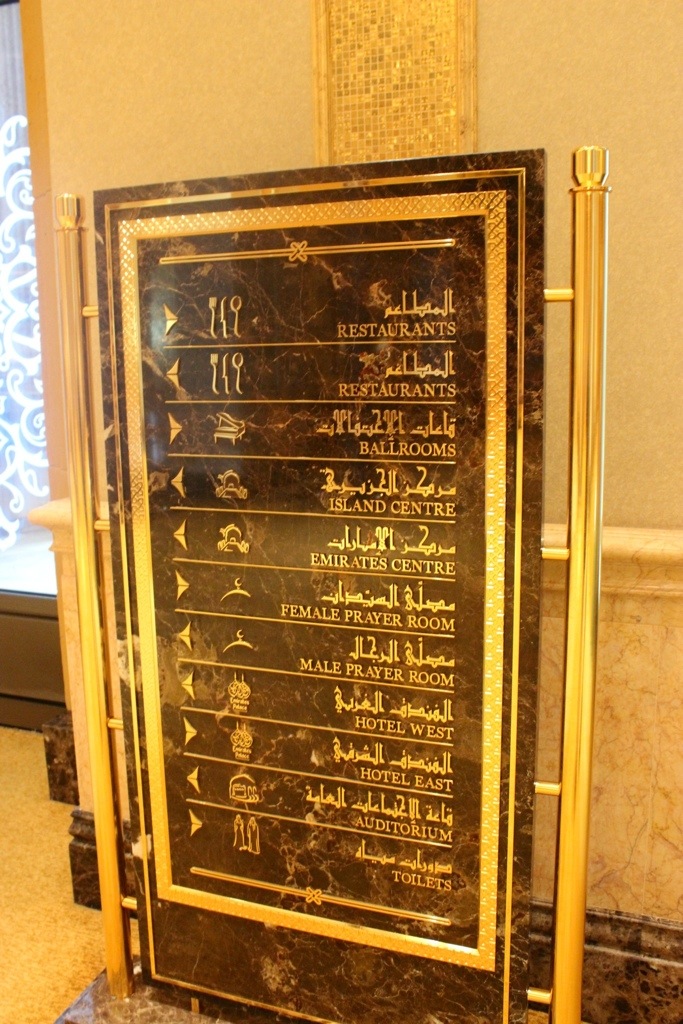 المطاعم
RESTAURANTS
المطاعم
RESTAURANTS
قاعات الإحتفالات
BALLROOMS
مركز الجزيرة
ISLAND CENTRE
مركز الإمارات
EMIRATES CENTRE
مصلّى السيّدات
FEMALE PRAYER ROOM
مصلّى الرجال
MALE PRAYER ROOM
Emirates
Palace
الفندق الغربي
HOTEL WEST
Emirates
Palace
الفندق الشرقي
HOTEL EAST
قاعة الإجتماعات العامة
AUDITORIUM
دورات مياه
TOILETS